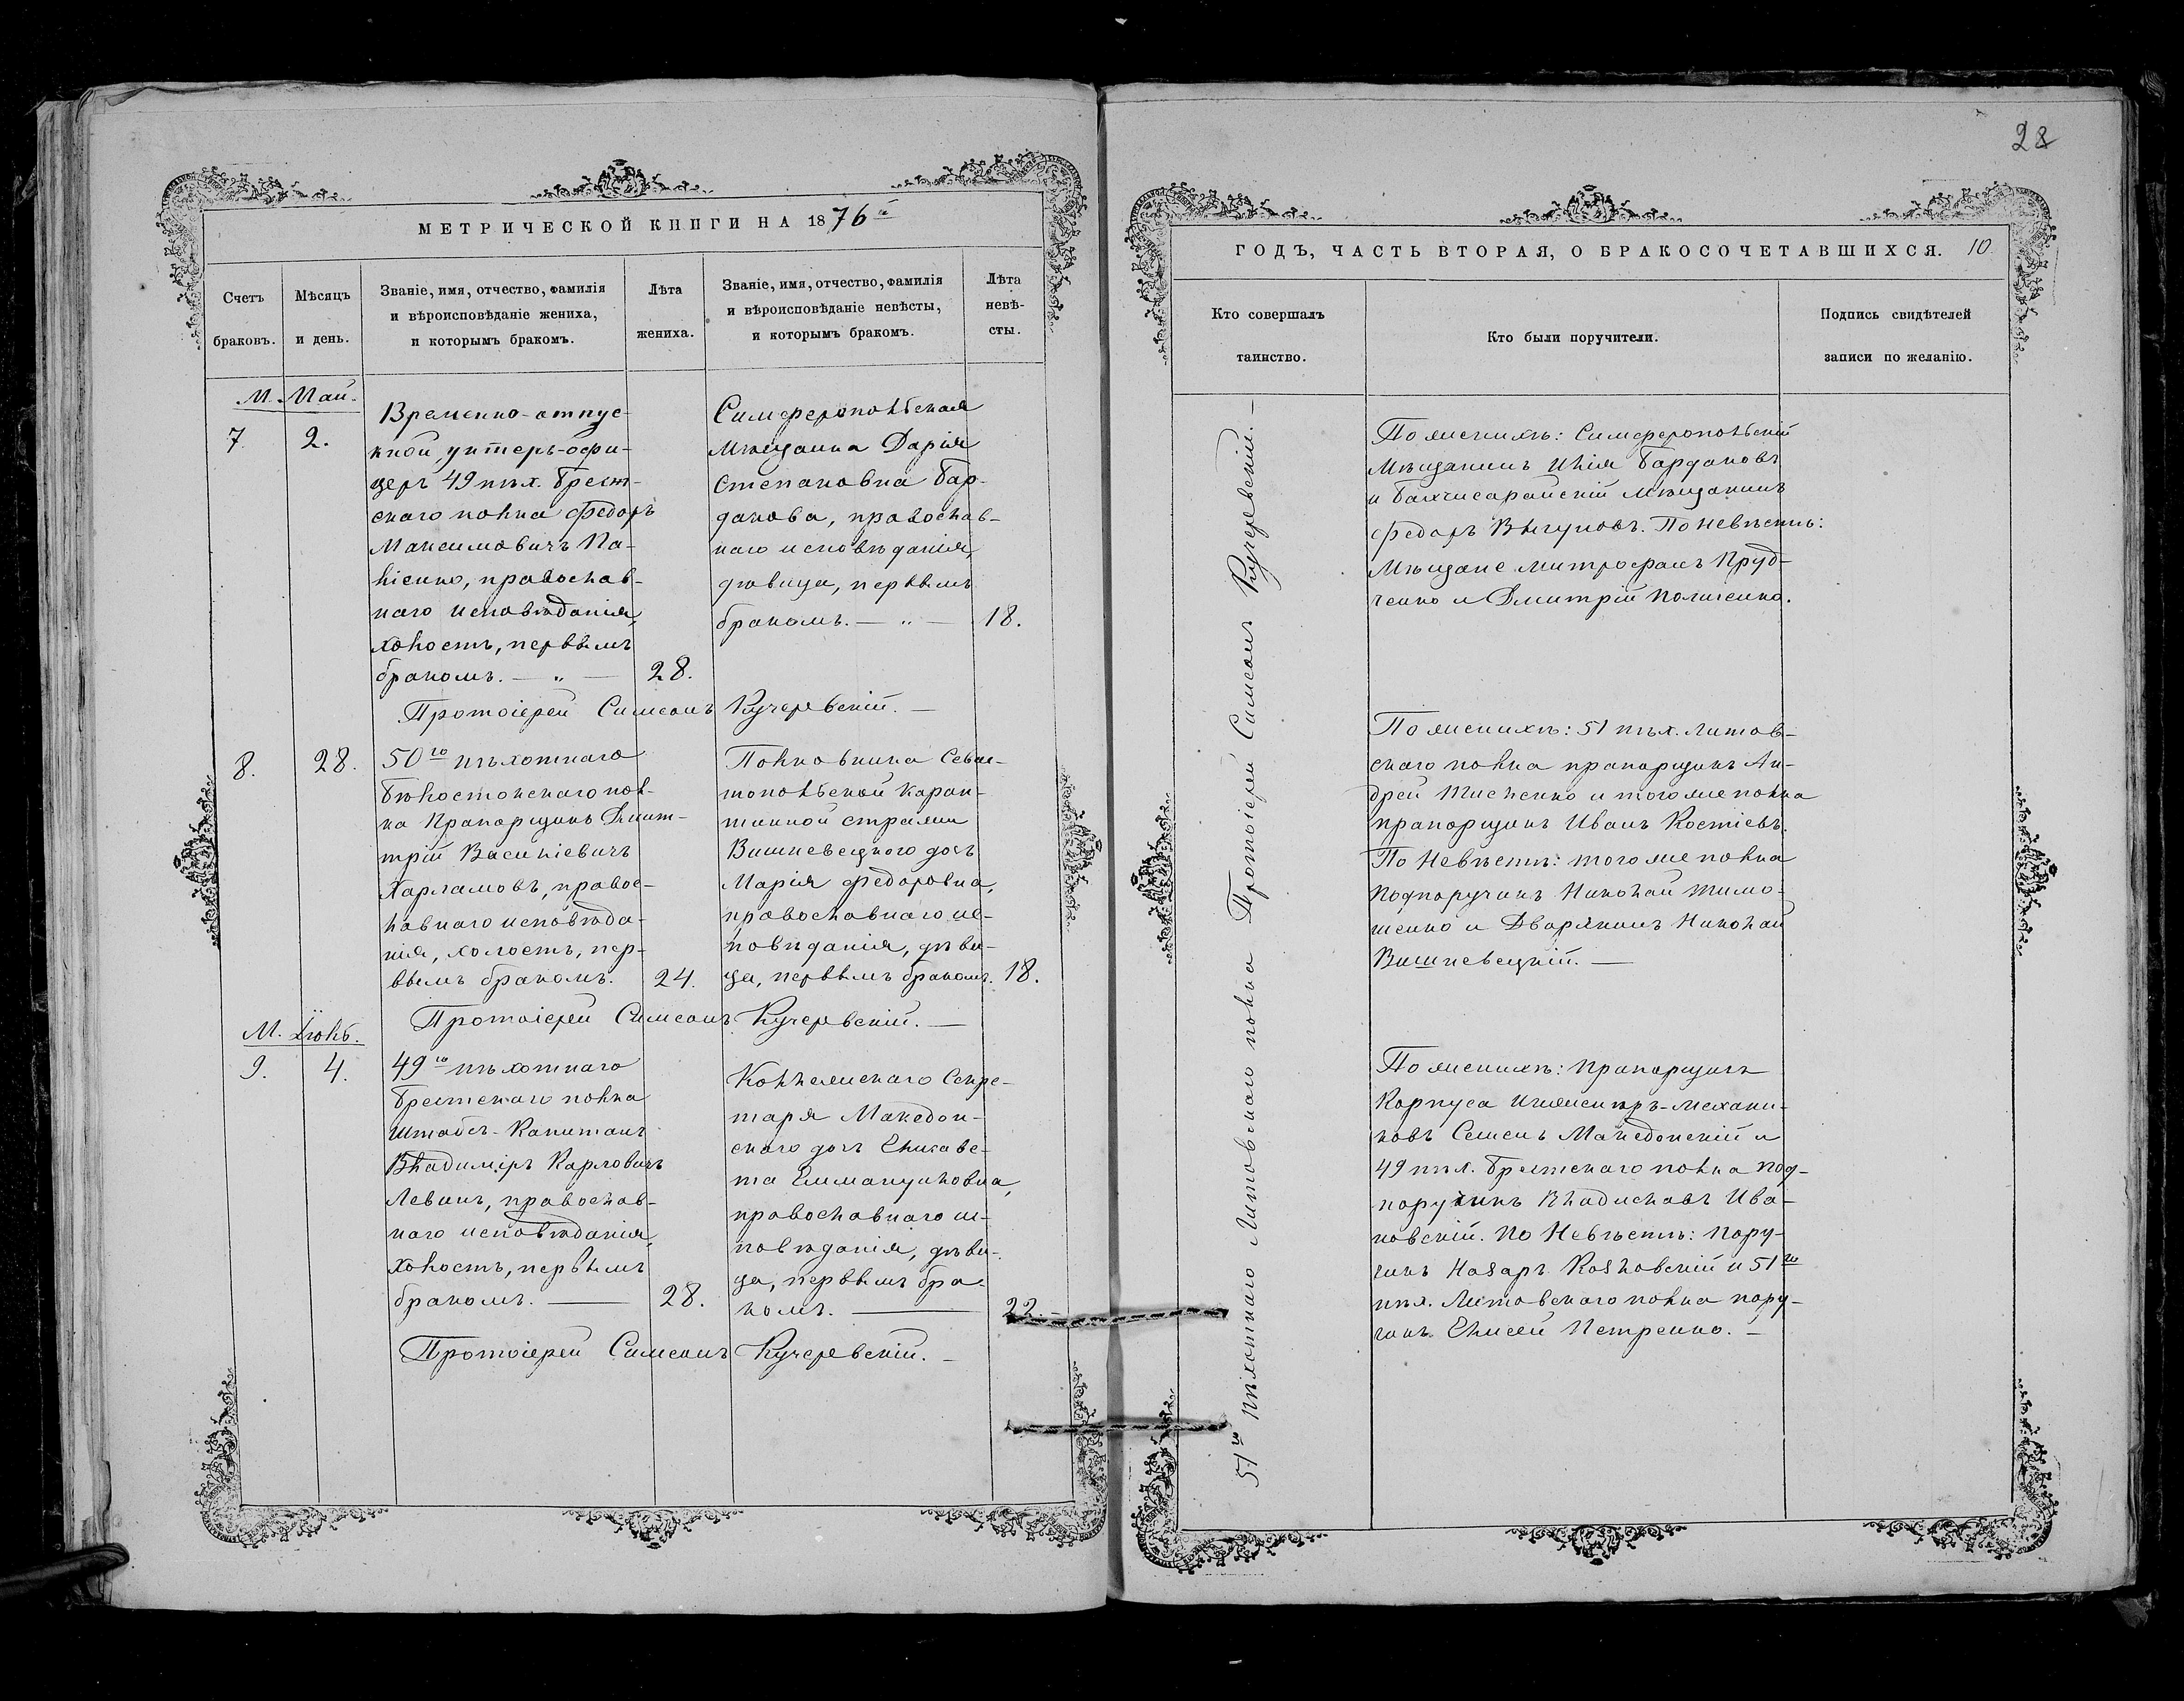 МЕТРИЧЕСКОЙ КНИГИ НА 1876й
Счетъ браковъ.
Мѣсяцъ и день.
Званіе, имя, отчество, фамилія
и вѣроисповѣданіе жениха,
и которымъ бракомъ.
Лѣта
жениха.
Званіе, имя, отчество, фамилія
и вѣроисповѣданіе невѣсты,
и которымъ бракомъ.
Лѣта
невѣ-
сты.
М. Май.
7.
2.
Временно-отпус-
кной унтеръ-офи-
церъ 49 пѣх. Брест-
скаго полка Федоръ
Максимовичъ Па-
ліенко, православ-
наго исповѣданія,
холостъ, первымъ
бракомъ. — „ —
28.
Симферопольская
мѣщанка Дарія
Степановна Бар-
данова, православ-
наго исповѣданія,
дѣвица, первымъ
бракомъ. — „ —
18.
Протоіерей Симеонъ Кучеревскій. —
8.
28.
50го пѣхотнаго
Бѣлостокскаго пол-
ка Прапорщикъ Дмит-
трій Василіевичъ
Харламовъ, правос-
лавнаго исповѣда-
нія, холостъ, пер-
вымъ бракомъ.
24.
Полковника Севас-
топольской каран-
тинной стражи
Вишневецкого дочь
Марія Федоровна,
православнаго ис-
повѣданія, дѣви-
ца, первымъ бракомъ.
18.
Протоіерей Симеонъ Кучеревскій. —
М. Іюль.
9.
4.
49го пѣхотнаго
Брестскаго полка
Штабсъ-Капитанъ
Владиміръ Карловичъ
Левинъ, православ-
наго исповѣданія,
холостъ, первымъ
бракомъ. —
28.
Коллежскаго Секре-
таря Македон-
скаго дочь Елисаве-
та Еммануиловна,
православнаго ис-
повѣданія, дѣви-
ца, первымъ бра-
комъ. —
22. —
Протоіерей Симеонъ Кучеревскій. —
28
ГОДЪ, ЧАСТЬ ВТОРАЯ, О БРАКОСОЧЕТАВШИХСЯ. 10
Кто совершалъ
таинство.
Кто были поручители.
Подпись свидѣтелей
записи по желанію.
51го пѣхотнаго Литовскаго полка Протоіерей Симеонъ Кучеревскій. —
По женихѣ: Симферопольскій
мѣщанинъ Илія Бардановъ
и Бахчисарайскій мѣщанинъ
Федоръ Выгуновъ. По невѣстѣ:
мѣщане Митрофанъ Пруд-
ченко и Дмитрій Полиенко.
По женихѣ: 51 пѣх. Литов-
скаго полка прапорщикъ Ан-
дрей Тисленко и того же полка
прапорщикъ Иванъ Костіевъ.
По Невѣстѣ: того же полка
Подпоручикъ Николай Тимо-
шенко и Дворянинъ Николай
Вишневецкій. —
По женихѣ: Прапорщикъ
Корпуса Инженеръ-Механи-
ковъ Семенъ Македонскій и
49 пѣх. Брестскаго полка под-
поручикъ Владиславъ Ива-
новскій. По Невѣстѣ: Пору-
чикъ Назаръ Козловскій и 51го
пѣх. Литовскаго полка пору-
чикъ Елисей Петренко. —